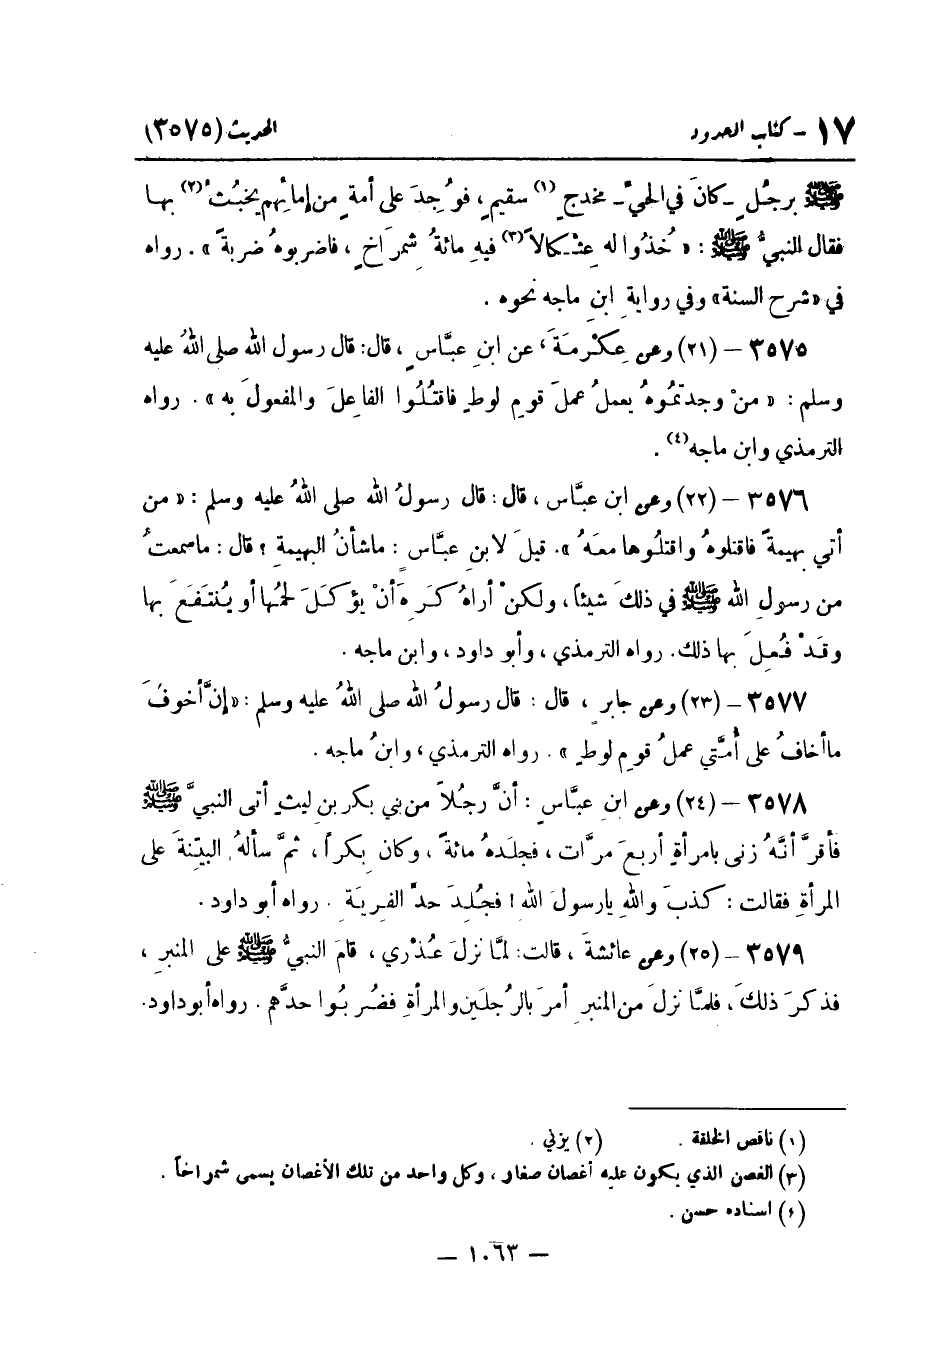 ١٧ - كتاب الحدود الحديث (٣٥٧٥)
ﷺ برجُلٍ ـ كانَ في الحيِّ ـ مخدجٍ (١) سقيمٍ، فوُجِدَ على أمةٍ من إمائِهم يخبُثُ (٢) بها
فقال النبيُّ ﷺ : « خُذُوا له عِثْكالاً (٣) فيهِ مائةُ شِمراخٍ ، فاضربوهُ ضربةً » . رواه
في «شرح السنة» وفي رواية ابنِ ماجه نحوه .
٣٥٧٥ – (٢١) وعن عِكْرِمَةَ ، عن ابنِ عبَّاسٍ ، قال: قال رسول الله صلى اللهُ عليه
وسلم : « منْ وجدتمُوهُ يعملُ عملَ قومِ لوطٍ فاقتُلُوا الفاعلَ والمفعولَ به » . رواه
الترمذي وابن ماجه (٤) .
٣٥٧٦ – (٢٢) وعن ابن عبَّاس ، قال : قال رسولُ الله صلى اللهُ عليه وسلم : « من
أتى بهيمةً فاقتلوهُ واقتلُوها معَهُ ». قيلَ لابنِ عبَّاسٍ : ماشأنُ البهيمةِ ؟ قال : ماسمعتُ
من رسولِ الله ﷺ في ذلكَ شيئاً ، ولكنْ أراهُ كَرِهَ أنْ يؤكَلَ لحمُها أو يُنتفَعَ بها
وقَدْ فُعِلَ بها ذلك. رواه الترمذي ، وأبو داود ، وابن ماجه .
٣٥٧٧ – (٢٣) وعن جابرٍ ، قال : قال رسولُ الله صلى اللهُ عليه وسلم : «إنَّ أخوفَ
ماأخافُ على أُمَّتي عملُ قومِ لوطٍ » . رواه الترمذي ، وابنُ ماجه .
٣٥٧٨ – (٢٤) وعن ابنِ عبَّاسٍ : أنَّ رجُلاً من بني بكر بنِ ليثٍ أتى النبيَّ ﷺ
فأقرَّ أنَّهُ زنى بامرأةٍ أربعَ مرَّات ، فجلَدهُ مائةً ، وكان بِكراً ، ثمَّ سألهُ البيّنةَ على
المرأةِ فقالت : كذبَ واللهِ يارسولَ الله ! فجُلِدَ حدَّ الفريَةِ . رواه أبو داود .
٣٥٧٩ – (٢٥) وعن عائشةَ ، قالت: لمَّا نزلَ عُذْري ، قامَ النبيُّ ﷺ على المنبرِ ،
فذكرَ ذلكَ ، فلمَّا نزلَ من المنبرِ أمرَ بالرجُلينِ والمرأةِ فضُرِبُوا حدَّهم . رواه أبوداود.
(١) ناقص الخلقة . (٢) يزني .
(٣) الغصن الذي يكون عليه أغصان صغار ، وكل واحد من تلك الأغصان يسمى شمراخاً .
(٤) اسناده حسن .
– ١٠٦٣ –